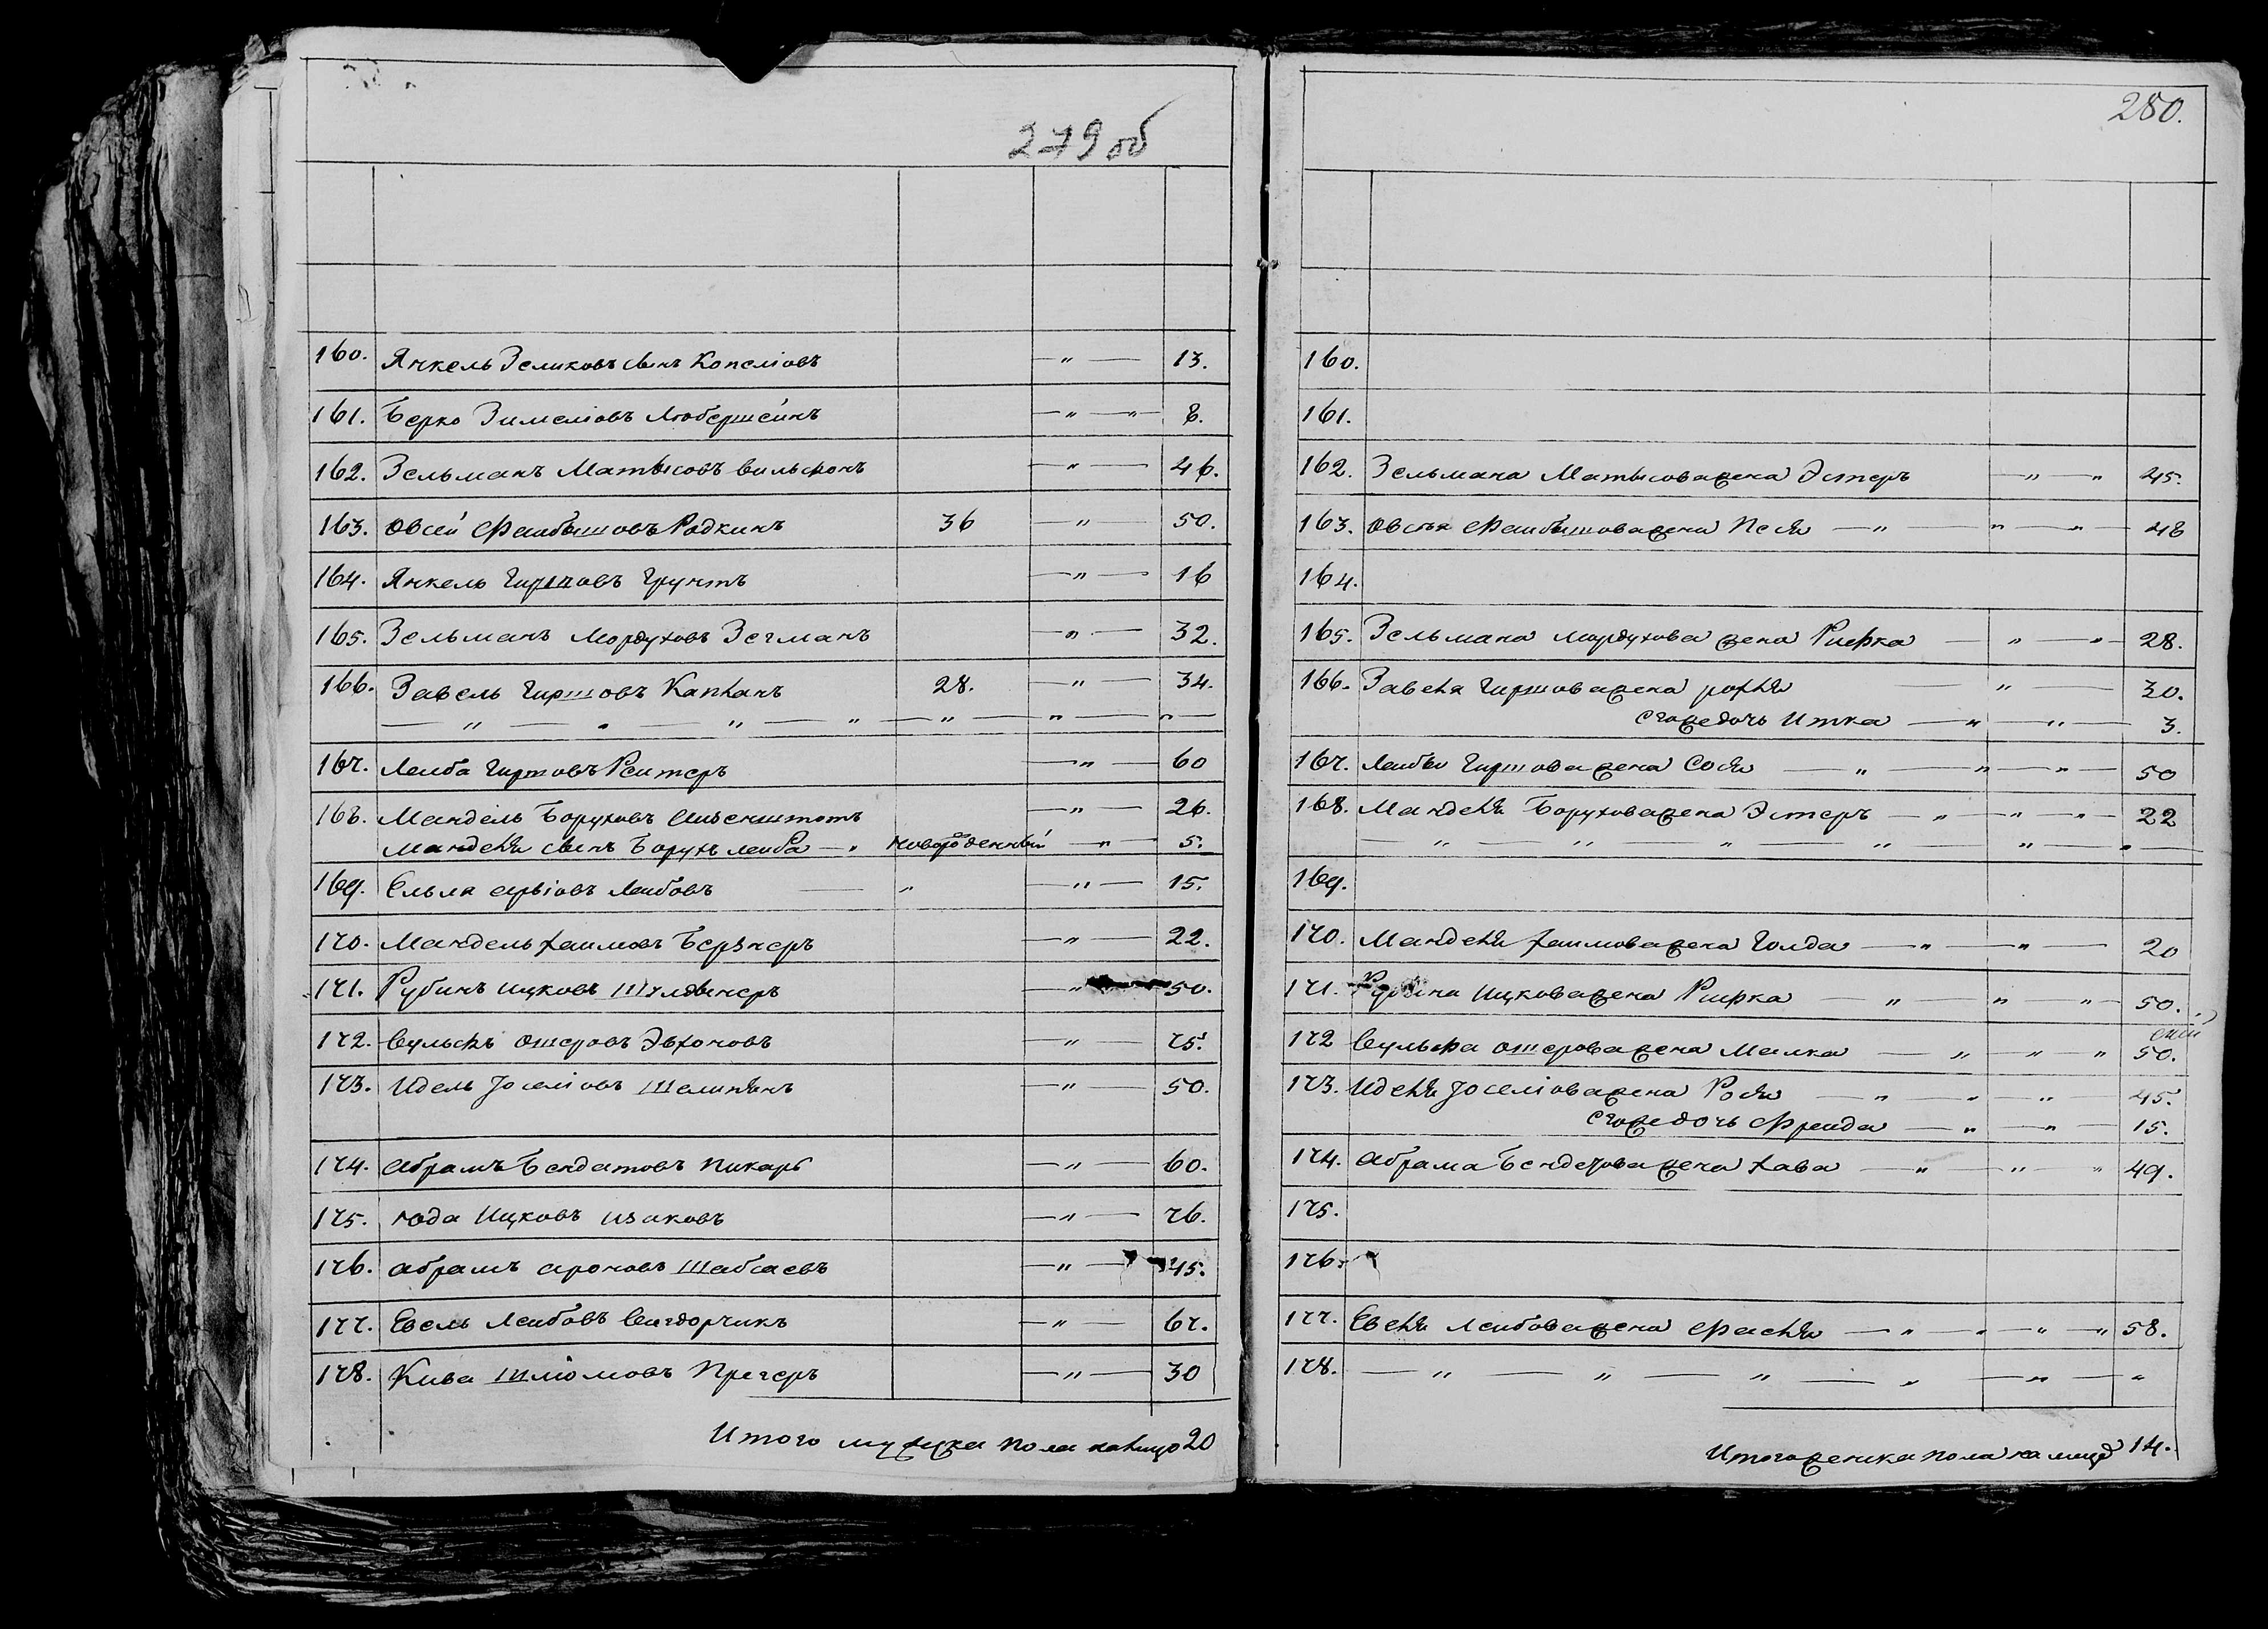 279 об
160. Янкель Зеликовъ сынъ Копелiовъ — " — 13.
161. Берко Зимелiовъ Любершейнъ — " — " — 8.
162. Зельманъ Матысовъ Вильфонъ — " — 46.
163. Овсей Файбышовъ Родкинъ 36 — " — 50.
164. Янкель Гиршовъ Грунтъ — " — 16
165. Зельманъ Мордуховъ Зегманъ — " — 32.
166. Завель Гиршовъ Капланъ 28. — " — 34.
— " — " — " — " — " — " — " —
167. Лейба Гиршовъ Рейтеръ — " — 60
168. Мандель Боруховъ — " — 26.
Манделя сынъ Борухъ Лейба — " новорожденный — " — 5.
169. Ельля Арьiовъ Лейбовъ — " — " — 15.
170. Мандель Хаимовъ Берзнеръ — " — 22.
171. Рубинъ Ицковъ — " — 50.
172. Вульфъ Ошеровъ — " — 75.
173. Идель Іоселiовъ — " — 50.
174. Абрамъ Бендетовъ Пикарь — " — 60.
175. Юда Ицковъ Изаковъ — " — 76.
176. Абрамъ Ароновъ Шабсаевъ — " — 45.
177. Евель Лейбовъ Вигдорчикъ — " — 67.
178. Кива Шлiомовъ Прегеръ — " — 30
Итого мужска пола налицо 20
280.
160.
161.
162. Зельмана Матысова жена Эстеръ — " — " 45.
163. Овсея Файбышова жена Песя — " — " — " — 48
164.
165. Зельмана Мордухова жена Рифка — " — " — 28.
166. Завеля Гиршова жена Рохля — " — 30.
его же дочь Итка — " — " — 3.
167. Лейбы Гиршова жена Сося — " — " — " — 50
168. Манделя Борухова жена Эстеръ — " — " — " — 22
— " — " — " — " — " — " —
169.
170. Манделя Хаимова жена Голда — " — " — 20
171. Рубина Ицкова жена Рифка — " — " — " — 50.
172 Вульфа Ошерова жена Малка — " — " — " 50.
173. Иделя Іоселiова жена Рося — " — " — " — 45.
его же дочь Фрейда — " — " — 15.
174. Абрама Бендетова жена Хава — " — " — " 49.
175.
176.
177. Евеля Лейбова жена Фасля — " — " — " — " 58.
178. — " — " — " — " — " — "
Итого женска пола на лицо 14.